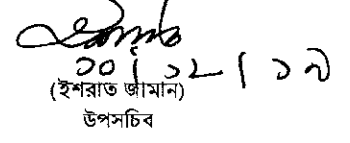 ১০/১২/১৭
(ইশরাত জামান)
উপসচিব